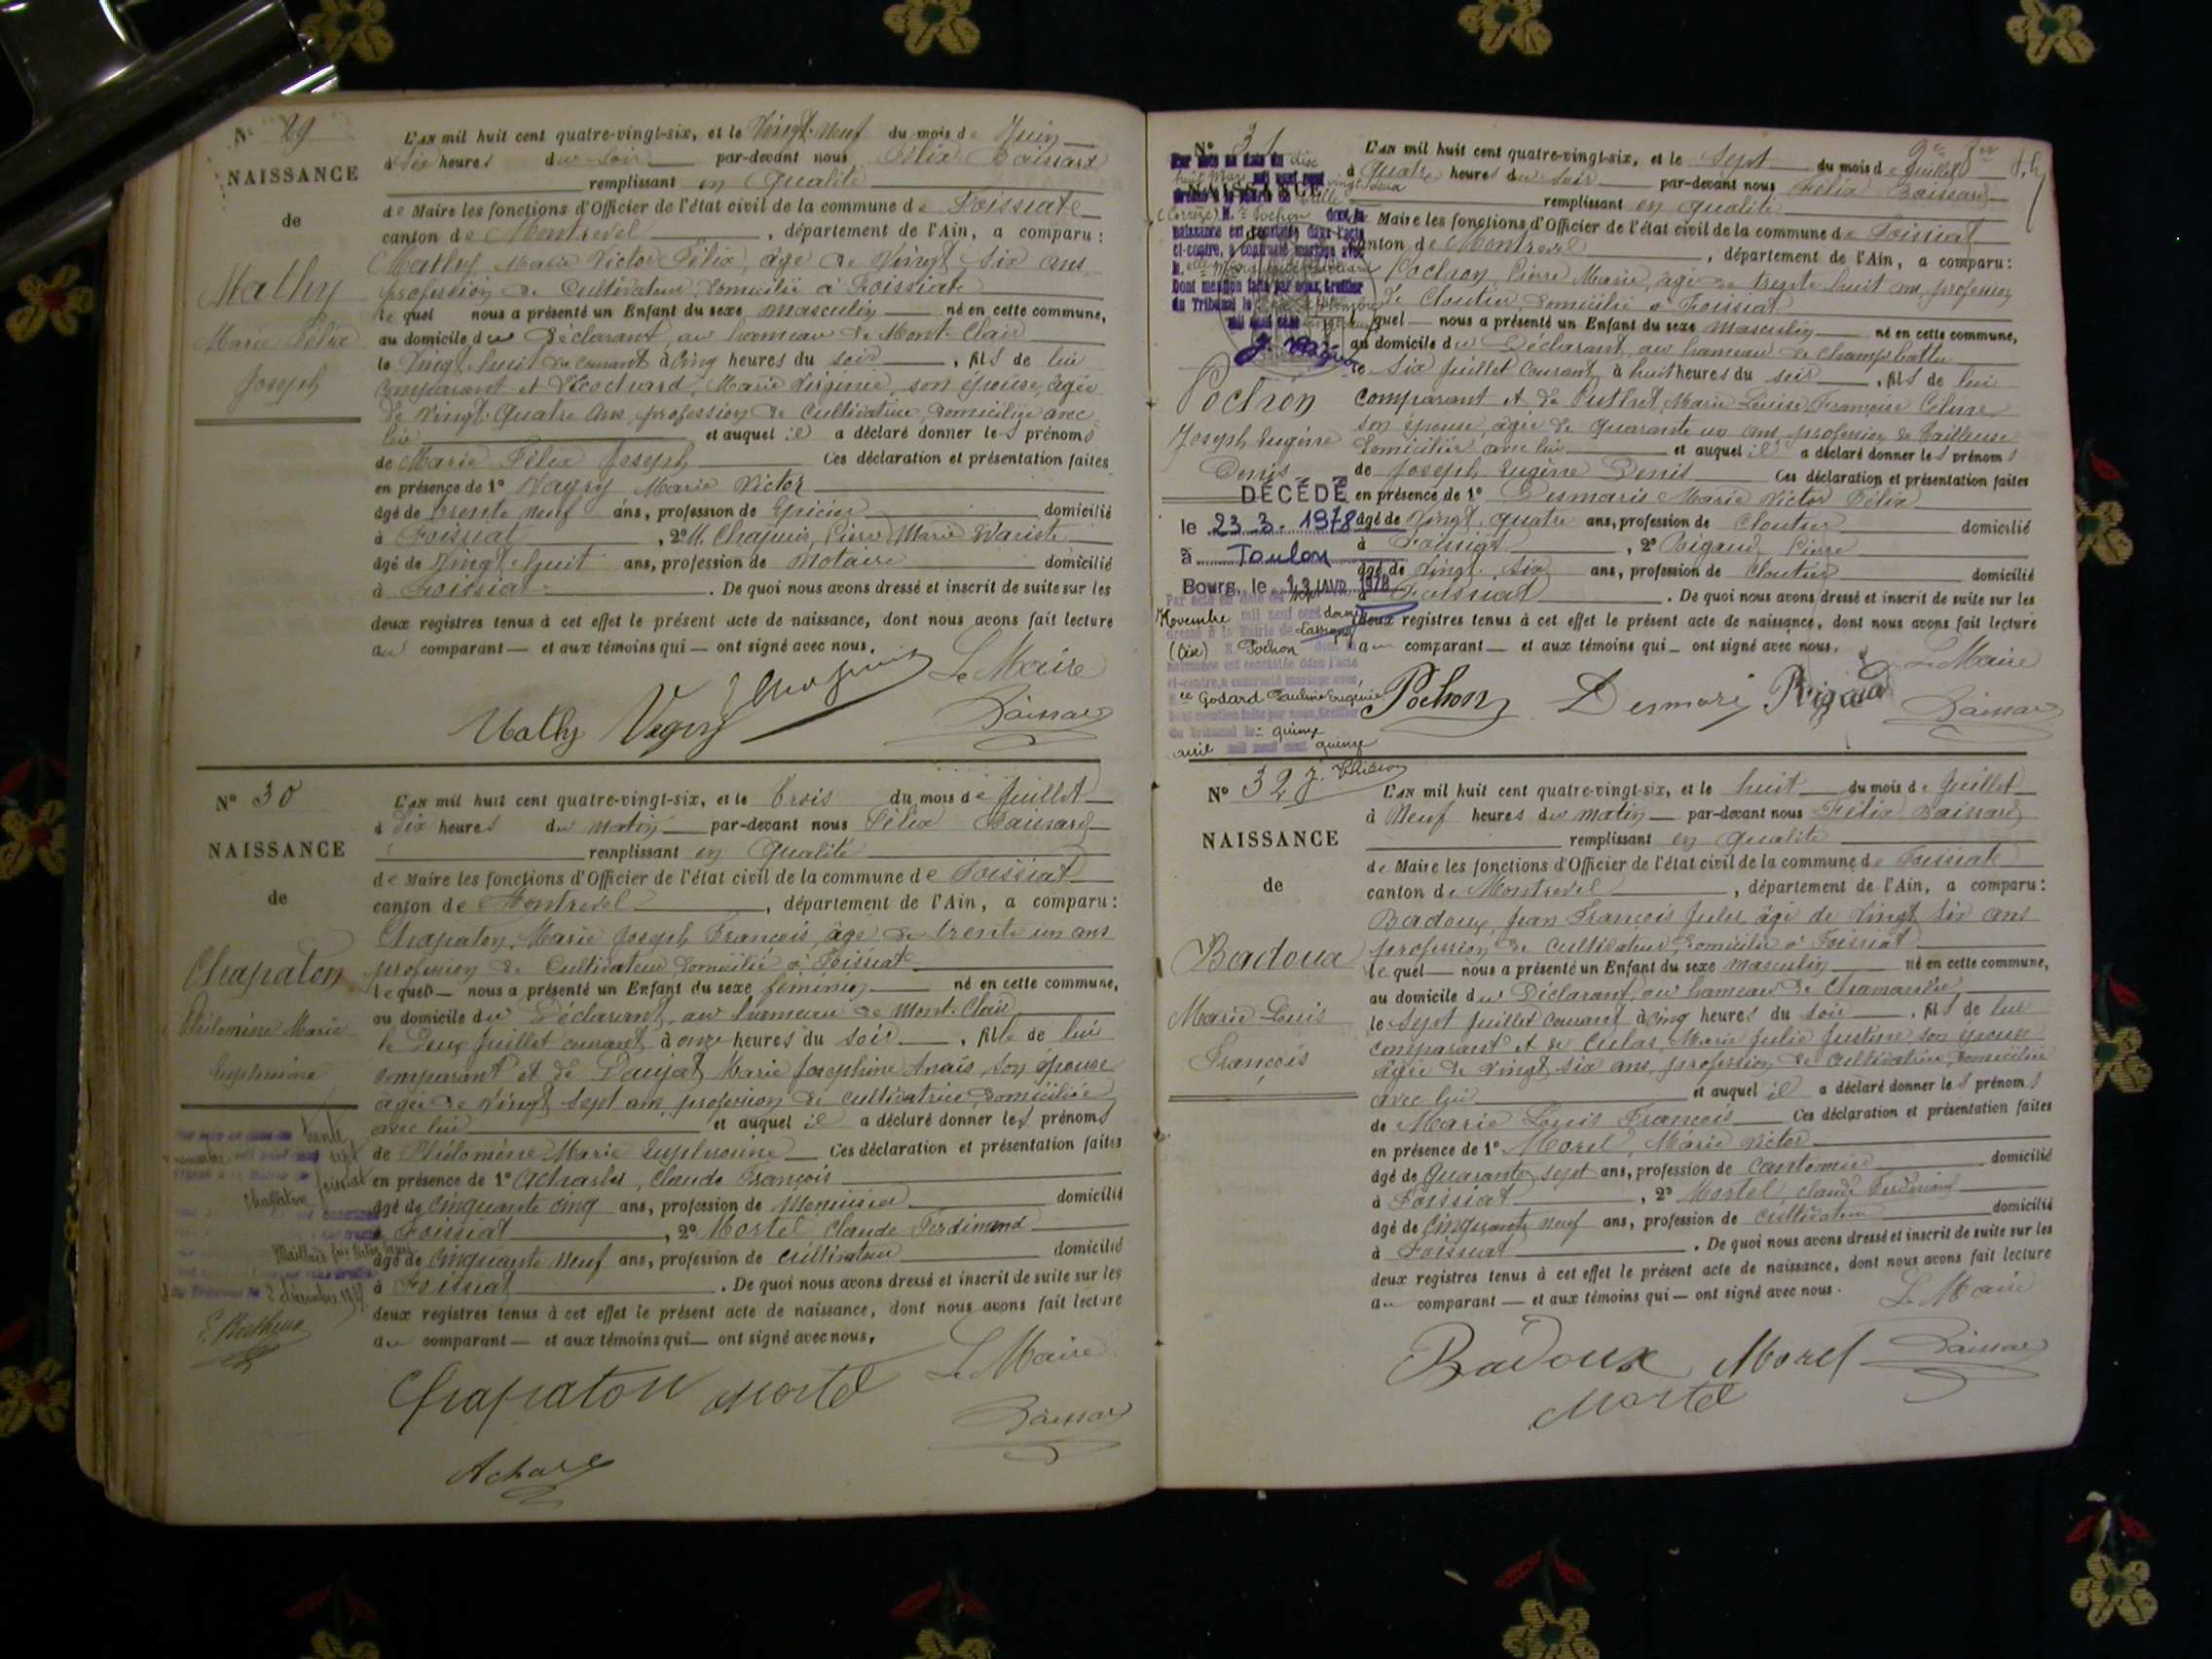 N° 29
NAISSANCE
de
Mathy
Marie Félix
Joseph
L'AN mil huit cent quatre-vingt-six, et le Vingt-Neuf du mois de Juin
à Six heures du soir par-devant nous Félix Baissard
remplissant en qualité
de Maire les fonctions d'Officier de l'état civil de la commune de Foissiat
canton de Montrevel, département de l'Ain, a comparu :
Mathy Marie Victor Félix, âgé de Vingt Six ans
profession de Cultivateur, domicilié à Foissiat
lequel nous a présenté un Enfant du sexe masculin né en cette commune,
au domicile du Déclarant, au hameau de Mont-Clair
le Vingt huit du courant à Cinq heures du soir, fils de lui
comparant et Marie Virginie, son épouse, âgée
de Vingt Quatre ans, profession de Cultivatrice, domiciliée avec
lui et auquel il a déclaré donner les prénoms
de Marie Félix Joseph Ces déclaration et présentation faites
en présence de 1° Vagry Marie Victor
âgé de trente neuf ans, profession de Epicier domicilié
à Foissiat, 2° M. Pierre Marie
âgé de Vingt huit ans, profession de Notaire domicilié
à Foissiat. De quoi nous avons dressé et inscrit de suite sur les
deux registres tenus à cet effet le présent acte de naissance, dont nous avons fait lecture
au comparant — et aux témoins qui — ont signé avec nous.
Le Maire
Mathy Vagry Baissard
N° 30
NAISSANCE
de
Chapaton
Philomène Marie
Euphrosine
L'AN mil huit cent quatre-vingt-six, et le trois du mois de Juillet
à Six heures du matin par-devant nous Félix Baissard
remplissant en qualité
de Maire les fonctions d'Officier de l'état civil de la commune de Foissiat
canton de Montrevel, département de l'Ain, a comparu :
Chapaton, Marie Joseph François, âgé de trente un ans
profession de Cultivateur domicilié à Foissiat
lequel — nous a présenté un Enfant du sexe féminin né en cette commune,
au domicile du Déclarant, au hameau de Mont-Clair
le Deux Juillet courant à onze heures du soir, fille de lui
comparant et de Paujat Marie Josephine Anaïs, son épouse
âgée de Vingt Sept ans, profession de cultivatrice, domiciliée
avec lui et auquel il a déclaré donner les prénoms
de Philomène Marie Euphrosine Ces déclaration et présentation faites
en présence de 1° Claude François
âgé de cinquante cinq ans, profession de Menuisier domicilié
à Foissiat, 2° Mortel Claude Ferdinand
âgé de cinquante neuf ans, profession de cultivateur domicilié
à Foissiat. De quoi nous avons dressé et inscrit de suite sur les
deux registres tenus à cet effet le présent acte de naissance, dont nous avons fait lecture
au comparant — et aux témoins qui — ont signé avec nous.
Le Maire
Chapaton Mortel
Baissard
N° 31
NAISSANCE
Pochon
Joseph Eugène
Denis
DÉCÉDÉ
le 23.3.1978
à Toulon
Bourg, le
Novembre mil neuf cent douze
(Oise) Pochon
Godard Pauline Eugénie
du Tribunal le quinze
avril mil neuf cent quinze
L'AN mil huit cent quatre-vingt-six, et le Sept du mois de Juillet
à Quatre heures du soir par-devant nous Félix Baissard
remplissant en qualité
de Maire les fonctions d'Officier de l'état civil de la commune de Foissiat
canton de Montrevel, département de l'Ain, a comparu :
Pochon, Pierre Marie, âgé de trente huit ans, profession
de Cloutier, domicilié à Foissiat
lequel — nous a présenté un Enfant du sexe Masculin né en cette commune,
au domicile du Déclarant, au hameau de
le Six Juillet courant, à huit heures du soir, fils de lui
comparant et de Marie Louise Françoise
son épouse, âgée de Quarante un ans, profession de Tailleuse
domiciliée avec lui et auquel il a déclaré donner les prénoms
de Joseph Eugène Denis Ces déclaration et présentation faites
en présence de 1° Desmaris Marie Victor Félix
âgé de Vingt quatre ans, profession de Cloutier domicilié
à Foissiat, 2° Rigaud Pierre
âgé de Vingt Six ans, profession de Cloutier domicilié
à Foissiat. De quoi nous avons dressé et inscrit de suite sur les
deux registres tenus à cet effet le présent acte de naissance, dont nous avons fait lecture
au comparant — et aux témoins qui — ont signé avec nous.
Le Maire
Pochon Desmaris Rigaud Baissard
N° 32
NAISSANCE
de
Badoux
Marie Louis
François
L'AN mil huit cent quatre-vingt-six, et le huit du mois de Juillet
à Neuf heures du matin par-devant nous Félix Baissard
remplissant en qualité
de Maire les fonctions d'Officier de l'état civil de la commune de Foissiat
canton de Montrevel, département de l'Ain, a comparu :
Badoux, Jean François Jules âgé de Vingt Six ans
profession de Cultivateur, domicilié à Foissiat
lequel — nous a présenté un Enfant du sexe masculin né en cette commune,
au domicile du Déclarant, au hameau de
le Sept Juillet courant à Cinq heures du soir, fils de lui
comparant et de Culas, Marie Julie Justine son épouse
âgée de Vingt six ans, profession de Cultivatrice, domiciliée
avec lui et auquel il a déclaré donner les prénoms
de Marie Louis François Ces déclaration et présentation faites
en présence de 1° Morel, Marie Victor
âgé de Quarante sept ans, profession de Cantonnier domicilié
à Foissiat, 2° Mortel, Claude Ferdinand
âgé de Cinquante Neuf ans, profession de Cultivateur domicilié
à Foissiat. De quoi nous avons dressé et inscrit de suite sur les
deux registres tenus à cet effet le présent acte de naissance, dont nous avons fait lecture
au comparant — et aux témoins qui — ont signé avec nous.
Le Maire
Badoux Morel Baissard
Mortel